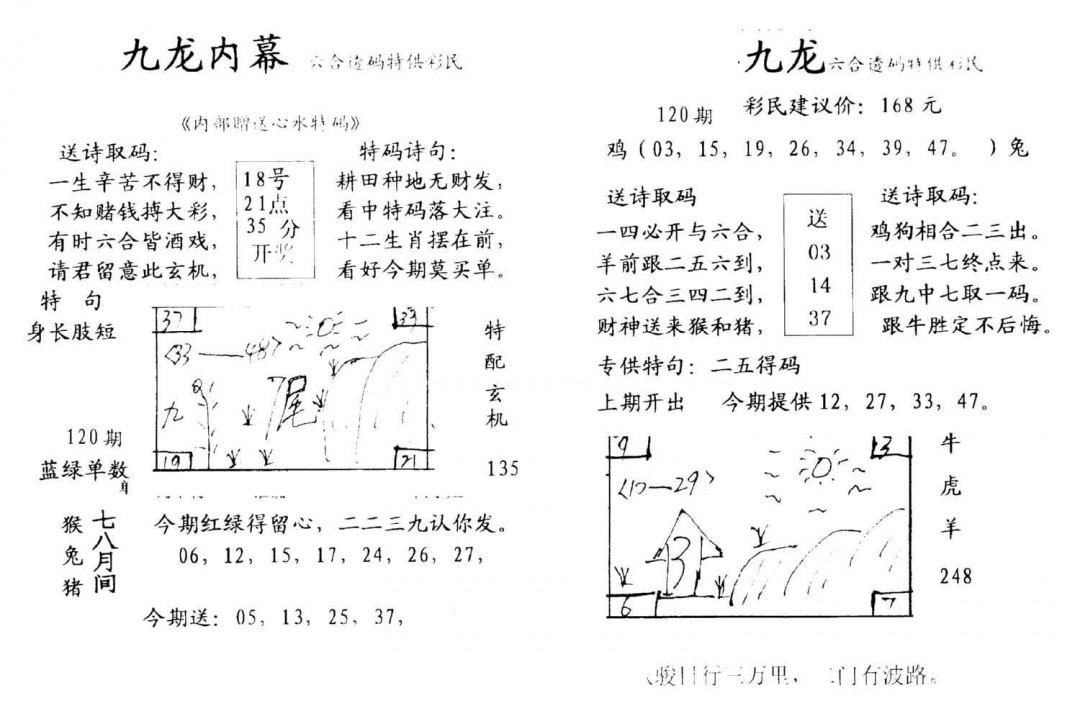 九龙内幕 六合透码特供彩民
《内部赠送心水特码》
送诗取码：
一生辛苦不得财，
不知赌钱搏大彩，
有时六合皆酒戏，
请君留意此玄机，
18号
21点
35 分
开奖
特码诗句：
耕田种地无财发，
看中特码落大注。
十二生肖摆在前，
看好今期莫买单。
特 句
身长肢短
37
33
<33—48>
九
尾
19
21
特
配
玄
机
135
120期
蓝绿单数
猴
兔
猪
七八月间
今期红绿得留心，二二三九认你发。
06，12，15，17，24，26，27，
今期送：05，13，25，37，
九龙六合透码特供彩民
120期 彩民建议价：168 元
鸡（03，15，19，26，34，39，47。 ）兔
送诗取码
一四必开与六合，
羊前跟二五六到，
六七合三四二到，
财神送来猴和猪，
送
03
14
37
送诗取码：
鸡狗相合二三出。
一对三七终点来。
跟九中七取一码。
跟牛胜定不后悔。
专供特句：二五得码
上期开出 今期提供12，27，33，47。
9
13
3
6
7
牛
虎
羊
248
骏日行三万里，
有波路。